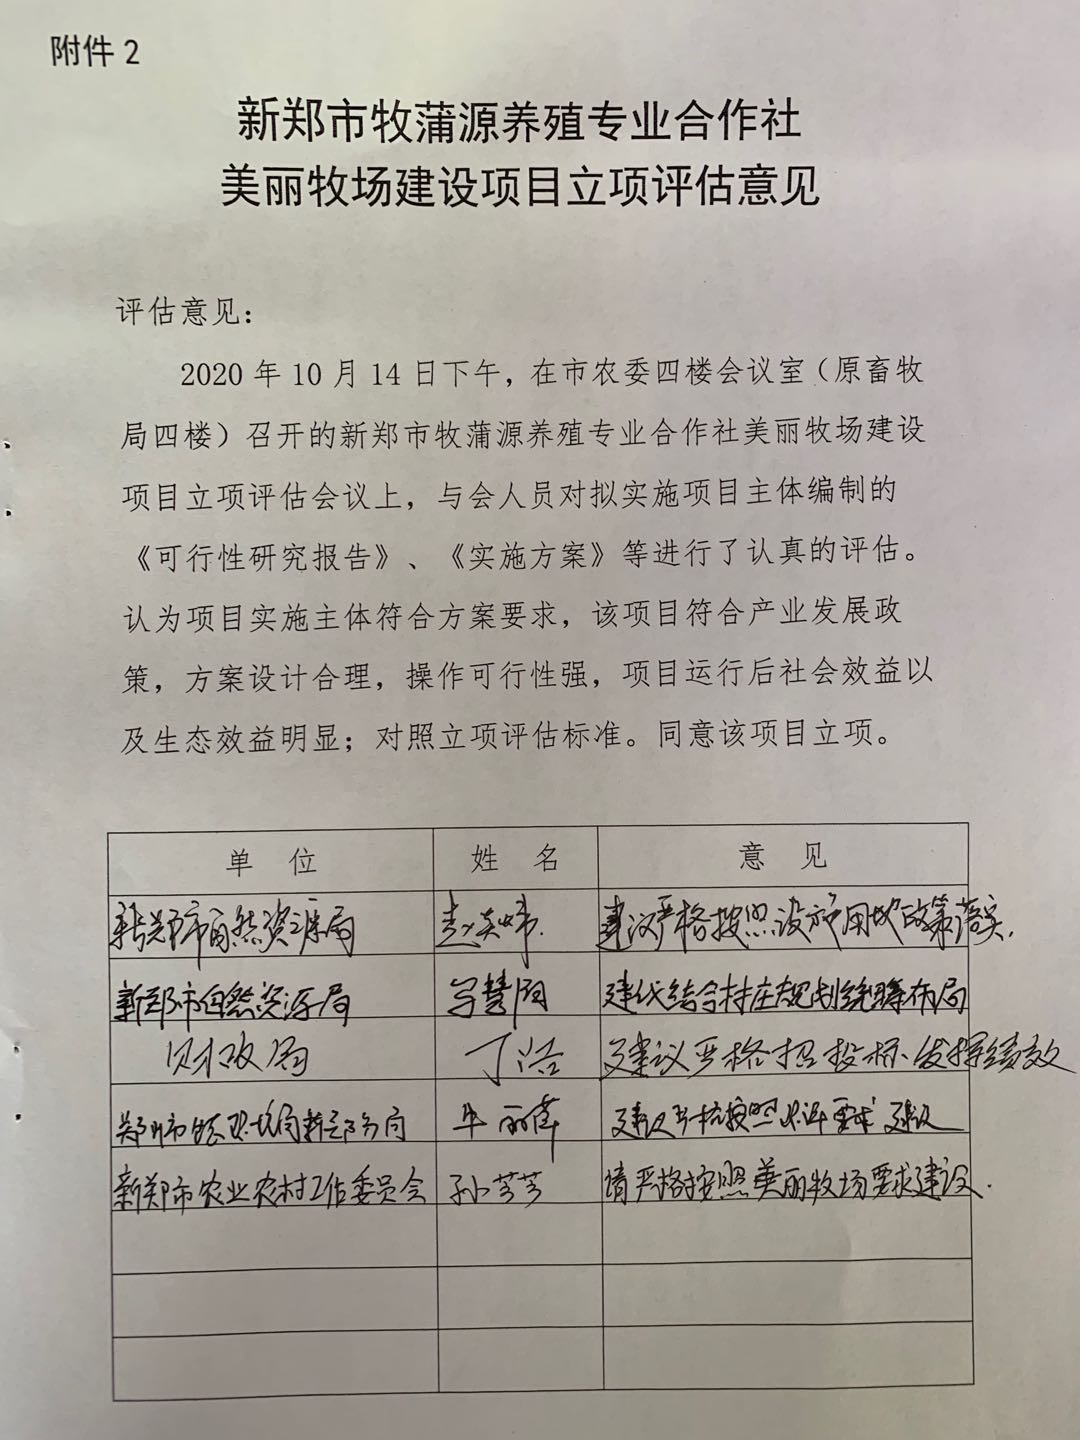 附件2
新郑市牧蒲源养殖专业合作社
美丽牧场建设项目立项评估意见
评估意见：
2020年10月14日下午，在市农委四楼会议室（原畜牧
局四楼）召开的新郑市牧蒲源养殖专业合作社美丽牧场建设
项目立项评估会议上，与会人员对拟实施项目主体编制的
《可行性研究报告》、《实施方案》等进行了认真的评估。
认为项目实施主体符合方案要求，该项目符合产业发展政
策，方案设计合理，操作可行性强，项目运行后社会效益以
及生态效益明显；对照立项评估标准。同意该项目立项。
单 位 姓 名 意 见
新郑市自然资源局 赵 建议严格按照设施用地政策落实.
新郑市自然资源局 慧阳 建议结合村庄规划统筹布局
财政局 丁浩 建议严格招投标、发挥绩效
郑州市生态环境局新郑分局 牛丽 建议严格按照环评要求建设
新郑市农业农村工作委员会 孙芳芳 请严格按照美丽牧场要求建设.